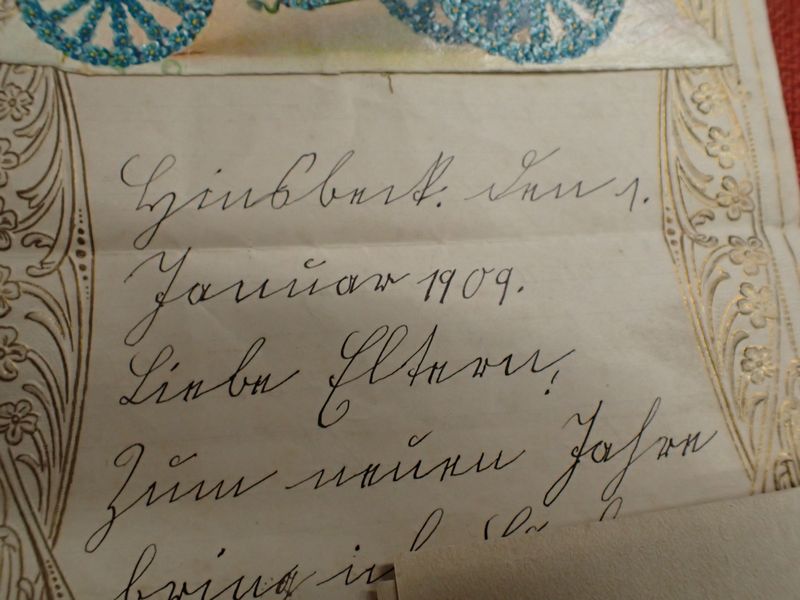 Hinsbeck. den 1.
Januar 1909.
Liebe Eltern!
Zum neuen Jahre
bring ich